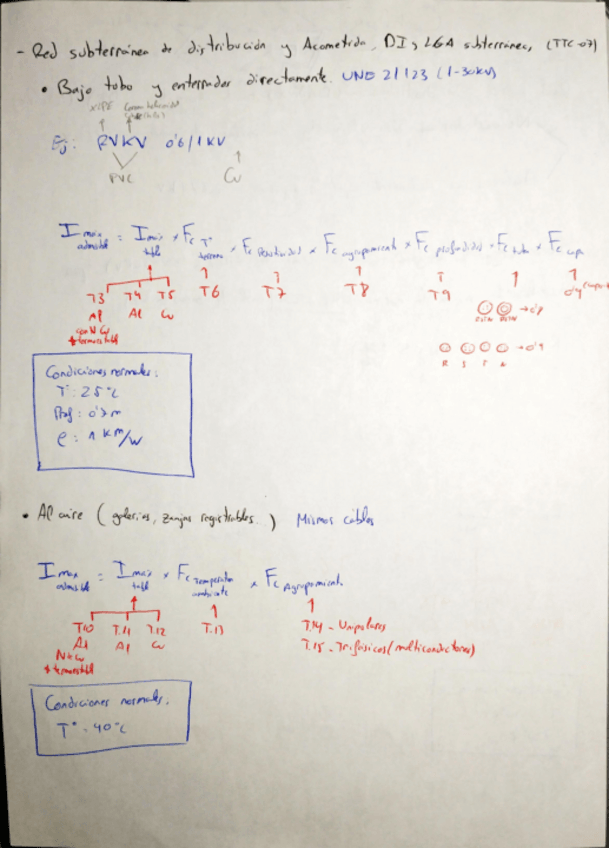 - Red subterránea de distribución y Acometida, DI y LGA subterránea, (ITC-07)
• Bajo tubo y enterrados directamente. UNE 21123 (1-30KV)
XLPE
Ej: RVKV 0'6/1KV
PVC Cu
Imax admisible = Imax tabla × Fc Tª terreno × Fc Resistividad × Fc agrupamiento × Fc profundidad × Fc tubo × Fc
T3 T4 T5 T6 T7 T8 T9
Al Al Cu
con N Cu
* termoestable
→ 0'8
RSTN RSTN
→ 0'9
R S T N
Condiciones normales:
Tª: 25°C
Prof: 0'7m
ρ: 1 Km/W
• Al aire (galerías, zanjas registrables..) Mismos cables
Imax admisible = Imax tabla × Fc Temperatura ambiente × Fc Agrupamiento
T.10 T.11 T.12 T.13 T.14 - Unipolares
Al Al Cu T.15 - Trifásicos (multiconductores)
N Cu
* termoestabl
Condiciones normales:
Tª = 40°C